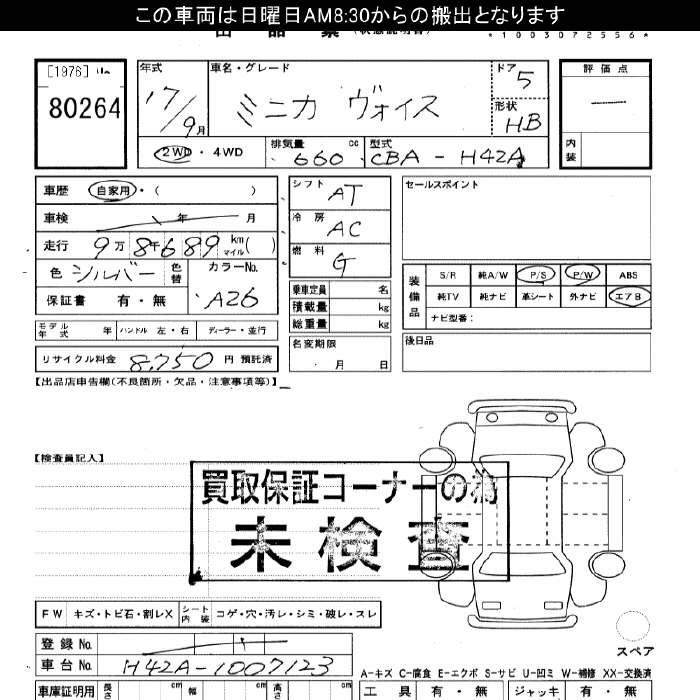 この車両は日曜日AM8:30からの搬出となります
出品票（状態説明書）
*1003072556*
[1976]
80264
年式 車名・グレード ドア 5 評価点
17/9月 ミニカ ヴォイス 形状 HB —
2WD・4WD 排気量 660 cc 型式 CBA-H42A 内装
車歴 自家用・( )
車検 年 月
走行 9万8千689 km マイル ( )
色 シルバー 色替 カラーNo. A26
保証書 有・無
モデル年式 年 ハンドル 左・右 ディーラー・並行
リサイクル料金 8,750 円 預託済
シフト AT
冷房 AC
燃料 G
乗車定員 名
積載量 kg
総重量 kg
名変期限 月 日
セールスポイント
装備品 S/R 純A/W P/S P/W ABS
純TV 純ナビ 革シート 外ナビ エアB
ナビ型番：
後日品
【出品店申告欄(不良箇所・欠品・注意事項等)】
【検査員記入】
買取保証コーナーの為
未検査
FW キズ・トビ石・割レX シート内装 コゲ・穴・汚レ・シミ・破レ・スレ
登録No.
車台No. H42A-1007123
スペア
A-キズ C-腐食 E-エクボ S-サビ U-凹ミ W-補修 XX-交換済
車庫証明用 長さ cm 幅 cm 高さ cm
工具 有・無 ジャッキ 有・無